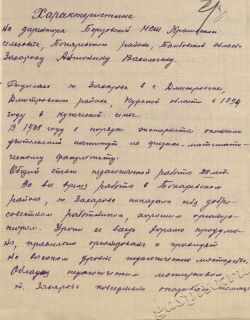 Характеристика
на директора Березовской НСШ Краивской
сельсовета, Токаревского района, Тамбовской области
Захарову Антонину Васильевну.
Родилась т. Захарова в г. Дмитровске,
Дмитровского района, Курской области в
году в семье.
В 1939 году в порядке экстерната окончила
учительский институт по физико-математи-
ческому факультету.
Общий стаж педагогической работы 20 лет.
За все время работы в Токаревском
районе, т. Захарова показала себя добро-
совестным работником, хорошим организа-
тором. Уроки ее всегда хорошо продума-
ны, правильно организованы и проходят
на высоком уровне педагогического мастерства.
Обладая педагогическим мастерством,
т. Захарова повседневно оказывает помощь